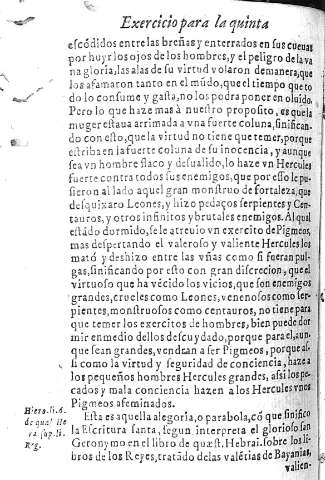 Exercicio para la quinta
escódidos entre las breñas y enterrados en sus cueuas
por huyr los ojos de los hombres, y el peligro de la va
na gloria, las alas de su virtud volaron demanera, que
los afamaron tanto en el múdo, que el tiempo que to
do lo consume y gasta, no los podra poner en oluido.
Pero lo que haze mas à nuestro proposito, es que la
muger estaua arrimada a vna fuerte coluna, sinifican-
do con esto, que la virtud no tiene que temer, porque
estriba en la fuerte coluna de su inocencia, y aunque
sea vn hombre flaco y desualido, lo haze vn Hercules
fuerte contra todos sus enemigos, que por esso le pu-
sieron al lado aquel gran monstruo de fortaleza, que
desquixaro Leones, y hizo pedaços serpientes y Cen-
tauros, y otros infinitos y brutales enemigos. Al qual
estádo dormido, se le atreuio vn exercito de Pigmeos,
mas despertando el valeroso y valiente Hercules los
mató y deshizo entre las vñas como si fueran pul-
gas, sinificando por esto con gran discrecion, que el
virtuoso que ha vécido los vicios, que son enemigos
grandes, crueles como Leones, venenosos como ser-
pientes, monstruosos como centauros, no tiene para
que temer los exercitos de hombres, bien puede dor
mir en medio dellos descuydado, porque para el, aun
que sean grandes, vendran a ser Pigmeos, porque as-
si como la virtud y seguridad de conciencia, haze a
los pequeños hombres Hercules grandes, assi los pe-
cados y mala conciencia hazen a los Hercules vnos
Pigmeos afeminados.
Esta es aquella alegoria, o parabola, có que sinifico
la Escritura santa, segun interpreta el glorioso san
Geronymo en el libro de quæst. Hebrai. sobre los li-
bros de los Reyes, tratádo de las valétias de Bayanias,
valien-
Hiero. li. d.
de quæ. He
ra. sup. li.
Reg.